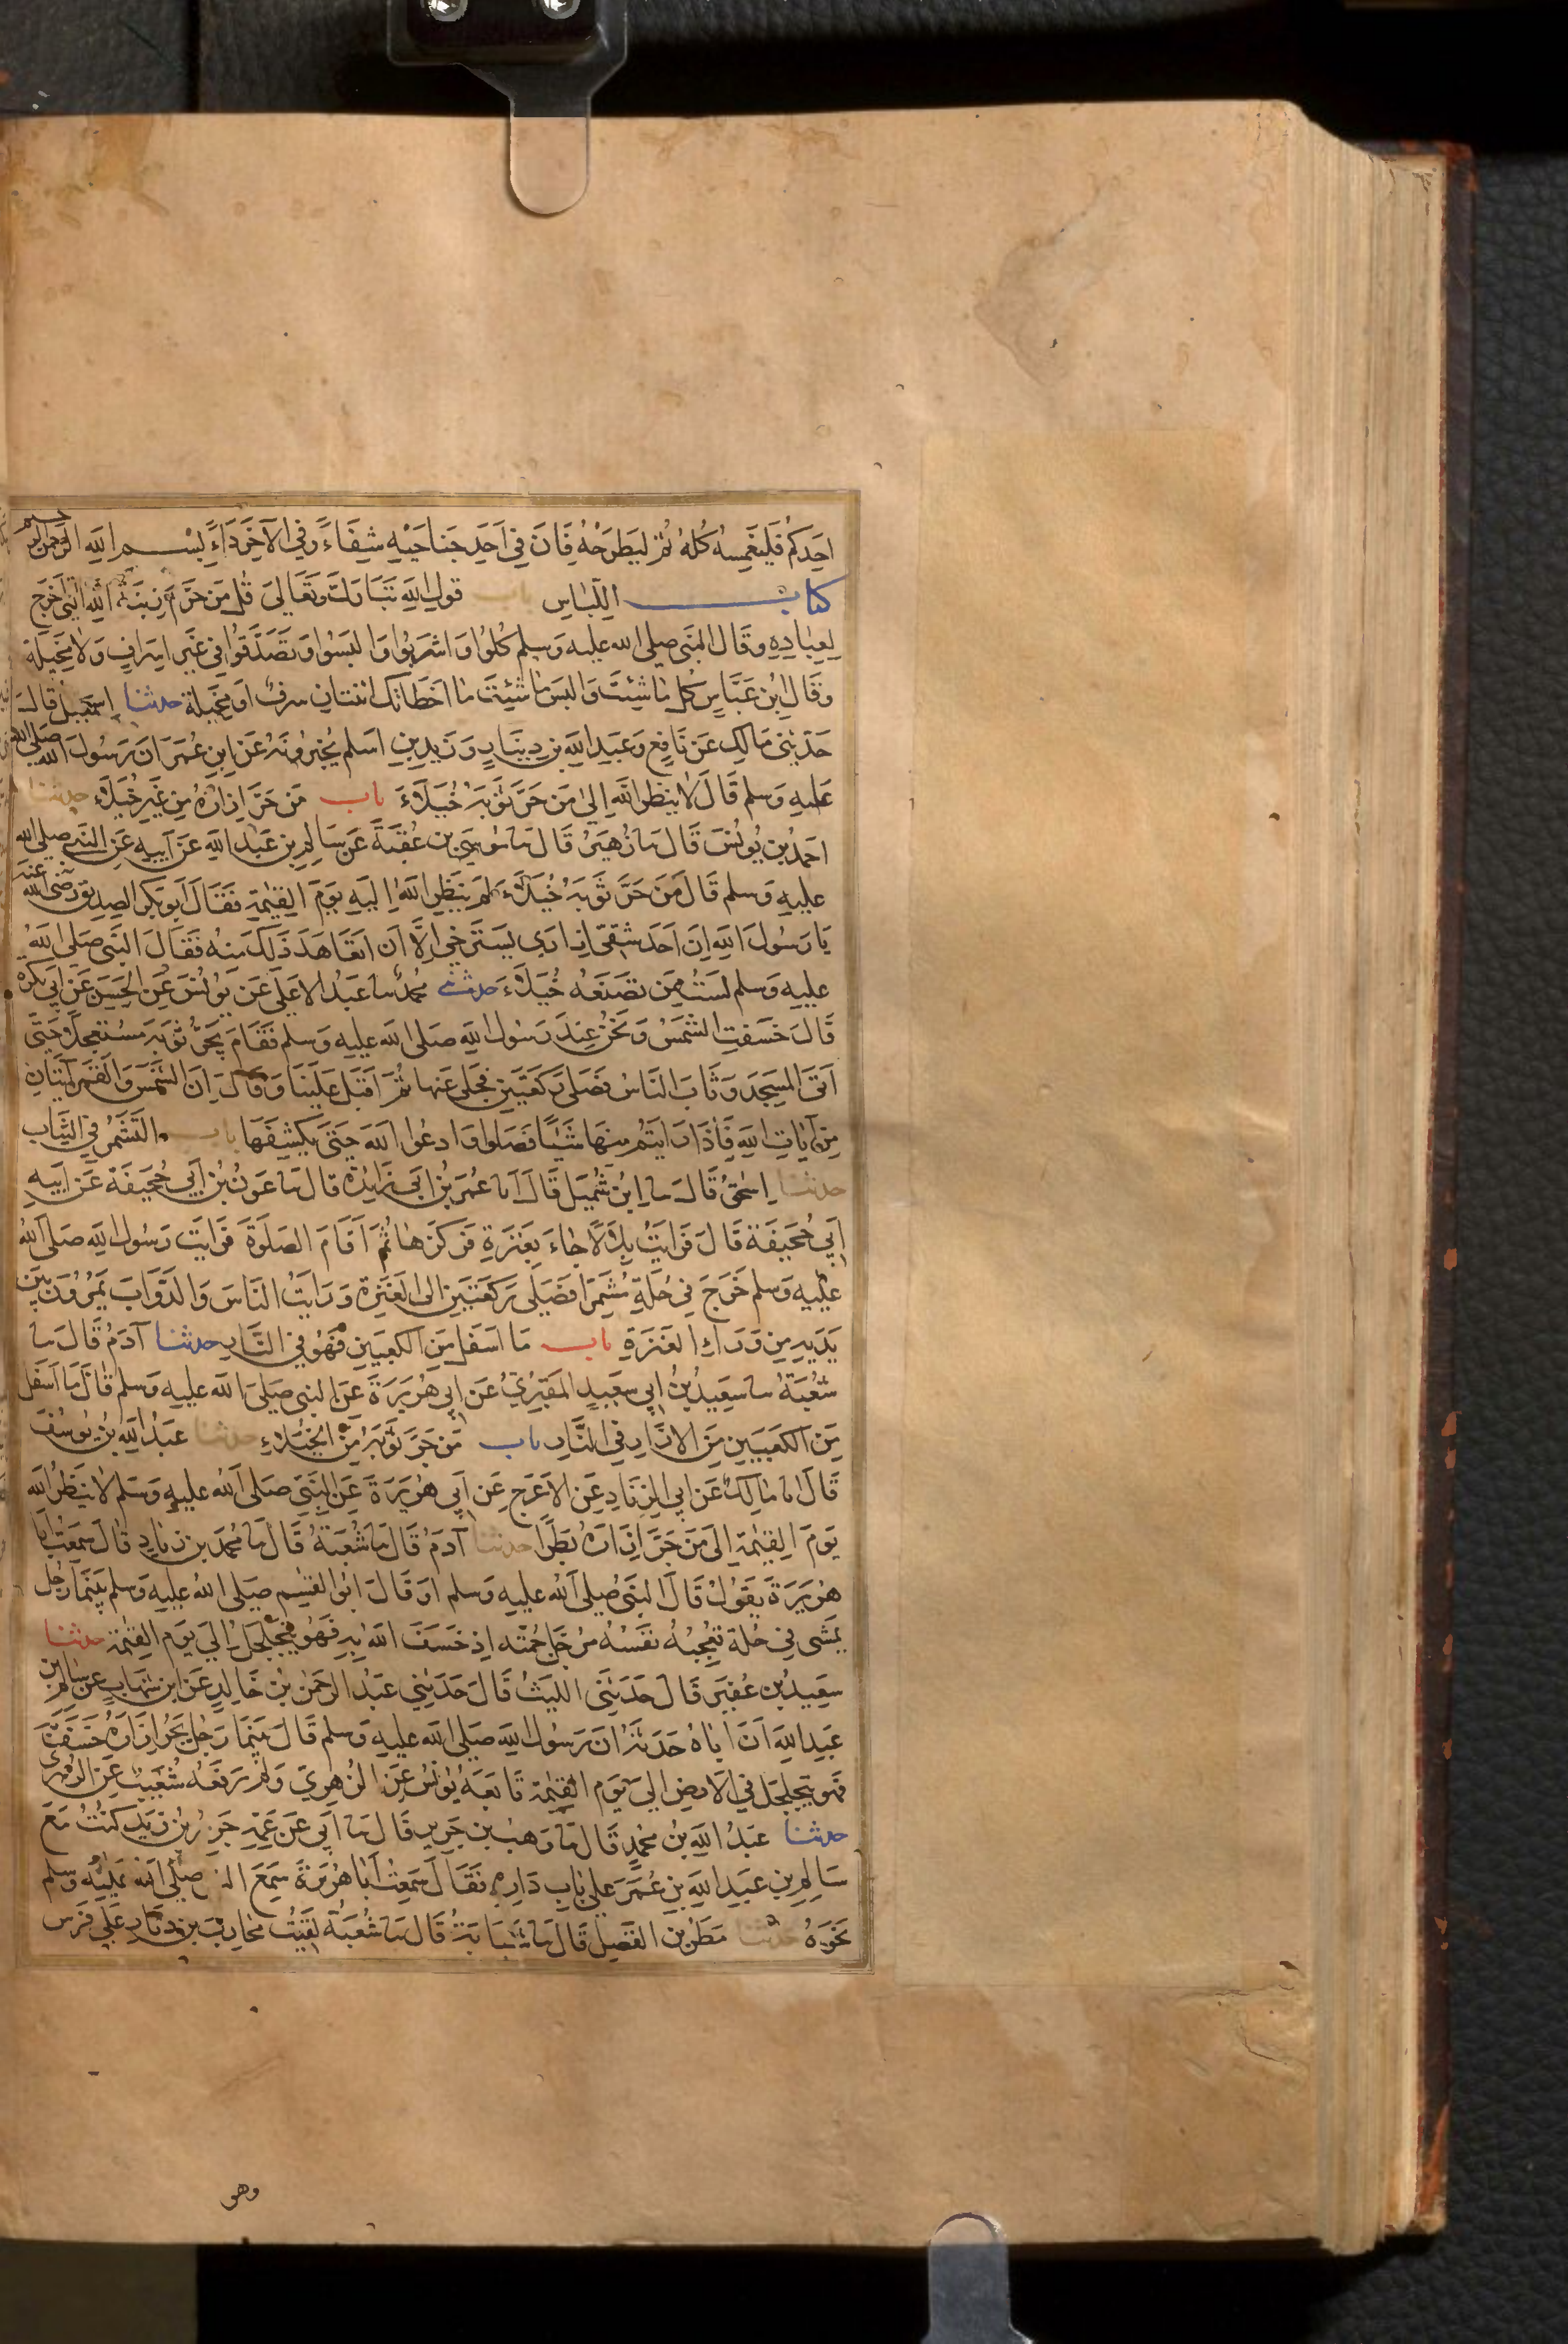 احَدِكُمْ فَليَغمِسهُ كُلهُ ثُمَّ ليَطرَحْهُ فَانَ فِي اَحَدِ جَناحَيْهِ شِفَاءً وَفِي الآخَرِ دَاءً بسْم الله الرحمن الرحيم
كتاب اللِّبَاسِ باب قولِ اللهِ تَبَارَكَ وَتَعَالَى قُل مَن حَرَّمَ زِينَةَ اللهِ التِى اَخرَج
لِعِبَادِهِ وقَالَ النَبي صلى الله عليه وَسلم كُلوُا وَاشرَبوُا وَالبَسُوا وَتَصَدَّقُوا فِى غَيرِ اِسرَافٍ وَلا مَخِيلَةٍ
وَقَالَ ابْن عَبَّاسٍ كُل مَا شِئتَ وَالبَس مَا شِئتَ مَا اَخطَاتكَ اثنتانِ سرفٌ اوْ مَخِيلَة حدثنا اسمعيل قالَ
حَدَّثِنى مَالِك عَن نَافِع وَعَبدِ اللهِ بن دِينَارٍ وَزَيدِ بنِ اسلم يُخبِرُونَهُ عَن ابنِ عُمَرَ اَنَ رَسُولَ الله صلى الله
عَليهِ وَسلم قَالَ لا يَنظر اللهُ اِلَى مَن جَرَّ ثَوْبَهُ خُيَلاءَ باب مَن جَرَّ اِزارَهُ مِن غَيرِ خُيَلاءِ حدثنا
احمَدُ بن يُونُسَ قَالَ نا زُهَيرٌ قَالَ نا مُوسَى بن عُقبَةَ عَن سَالِمِ بن عَبدِ اللهِ عَن اَبيهِ عَن النَبي صلى الله
عليهِ وَسلم قَالَ مَن جَرَّ ثَوبَهُ خُيَلاءَ لَم يَنظرِ اللهُ اِليهِ يَومَ القِيمَةِ فَقَالَ اَبو بَكرٍ الصِدِيق رضى الله عنه
يَا رَسُولَ اللهِ اِنَ اَحَدَ شقىَّ اِزارِي يَستَرخِي اِلَّا اَن اَتَعَاهَدَ ذَلِكَ مِنهُ فَقَالَ النَبي صَلى اللهُ
عليهِ وَسلم لَستَ مِمن يَصنَعُهُ خُيَلاءَ حدثنى محمدٌ نا عَبدُ الاعلَى عَن يُونُسَ عَن الحَسَنِ عَن اَبي بكرة
قَالَ خَسَفتِ الشمسُ وَنَحنُ عِندَ رَسُول اللهِ صلى الله عليه وسلم فَقَامَ يَجُرُّ ثَوبَهُ مُستَعجِلًا حَتَّى
اَتَى المَسِجِدَ وَثَابَ النَاسُ فَصَلى رَكعَتَينِ فَجُلى عَنها ثُمَّ اَقبَلَ عَلَينَا وَقَالَ اِنَّ الشَمسَ وَالقَمرَ آيَتَانِ
مِن آيَاتِ اللهِ فَاِذَا رَايتُم مِنهَا شَيئًا فَصَلوا وَادعُوا اللهَ حَتَى يَكشِفَهَا باب التَشَمُّرِ فِي الثيَاب
حدثنا اِسحقُ قَالَ نا اِبْن شُمَيل قَالَ انا عُمَر بْن ابى زَايِدَة قال نا عَونُ بْن اَبي جُحَيفَةَ عَن ابيهِ
اَبي جُحَيفَةَ قَالَ فَرَايتُ بِلالًا جَاءَ بِعَنَزَةٍ فَرَكزَهَا ثُمَّ اَقَامَ الصَلوَةَ فَرَايتُ رَسُولَ اللهِ صلى اللهُ
عليهِ وَسلم خَرَجَ فِى حُلَةٍ مُشَمِّرًا فَصَلى رَكعَتَينِ اِلى العَنَزَة وَرَايتُ النَاسَ وَالدَّوَابَ يَمُرُّونَ بَينَ
يَدَيهِ مِن وَرَاءِ العَنَزَةِ باب مَا اسفَل مِنَ الكعبَينِ فَهُوَ فِي النَّارِ حدثنا آدَمُ قَالَ نا
شُعبَةُ نا سَعِيدُ بنُ ابى سعيدٍ المَقبُرِيُّ عَن ابي هُرَيرَةَ عَن النبي صلى الله عليه وسلم قَالَ مَا اَسفَل
مِنَ الكَعبَينِ مِنَ الازَارِ فِي النَّارِ باب مَن جَرَّ ثَوبَهُ مِنَ الخُيَلاءِ حدثنا عَبدُ اللهِ بن يُوسُف
قَالَ انا مَالِكٌ عَن ابى الزِنَادِ عَن الاَعرَجِ عَن اَبي هُرَيرَةَ عَن النَبي صَلى اللهُ عليهِ وَسلم لا يَنظُرُ الله
يَومَ القِيمَةِ اِلَى مَن جَرَّ اِزَارَهُ بَطَرًا حدثنا آدَمُ قَالَ نا شُعبَةُ قَالَ نا مُحَمد بن زيادٍ قَالَ سَمِعتُ اَبا
هُرَيرَةَ يَقُولُ قَالَ النَبيُّ صلى اللهُ عليهِ وسلم اَوْ قَالَ ابُو القسِم صَلى اللهُ عليهِ وَسلم بَينَمَا رَجُل
يَمشِى فِي حُلةٍ تُعجِبُهُ نَفسُهُ مُرَجِّل جُمَّتَه اِذ خَسَفَ اللهُ بِهِ فَهُو يَتَجَلجَلُ اِلَى يَومِ القِيمَة حدثنا
سَعِيدُ بن عُفَيرٍ قَالَ حَدَثَنِى الليثُ قَالَ حَدَثَنِي عَبدُ الرَّحمَنِ بْن خَالِدٍ عَن ابن شِهَابٍ عن سَالم بن
عَبدِ اللهِ اَنَّ ابَاهُ حَدَثَهُ اَنَّ رَسُولَ اللهِ صلى الله عليه وسلم قَالَ بَينَمَا رَجُل يَجُرُّ اِزَارَهُ خُسِفَ بِهِ
فَهو يَتَجَلجَل فِي الاَرضِ اِلَى يَوم القِيمَة تَابَعَهُ يُونُسُ عَن الزُهرِيّ وَلَم يَرفَعهُ شُعَيبٌ عَن الزُهرى
حدثنا عَبدُ اللهِ بنُ مُحَمَّدٍ قَالَ نَا وَهبُ بن جَرِيرٍ قَالَ نا اَبِي عَن عَمِّهِ جَرِيرِ بن زَيدٍ كُنتُ مَعَ
سَالِمِ بن عَبدِ اللهِ بن عُمَرَ عَلَى بَابِ دَارِهِ فَقَالَ سَمِعتُ اَبَا هُرَيرَةَ سَمِعَ النبي صلى الله عَلَيهِ وسلم
نَحوَهُ حدثنا مَطَرُ بن الفَضلِ قَالَ نا شَبَابَةُ قَالَ نا شُعبَةُ لَقِيتُ مُحَارِبَ بن دِثَار عَلَى فَرَس
وهو